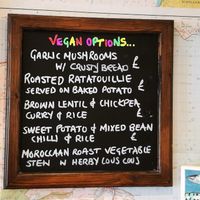 VEGAN OPTIONS...
GARLIC MUSHROOMS
W/ CRUSTY BREAD £
ROASTED RATATOUILLIE
SERVED ON BAKED POTATO £
BROWN LENTIL & CHICKPEA
CURRY & RICE £
SWEET POTATO & MIXED BEAN
CHILLI & RICE £
MOROCCAN ROAST VEGETABLE
STEW N HERBY COUS COUS